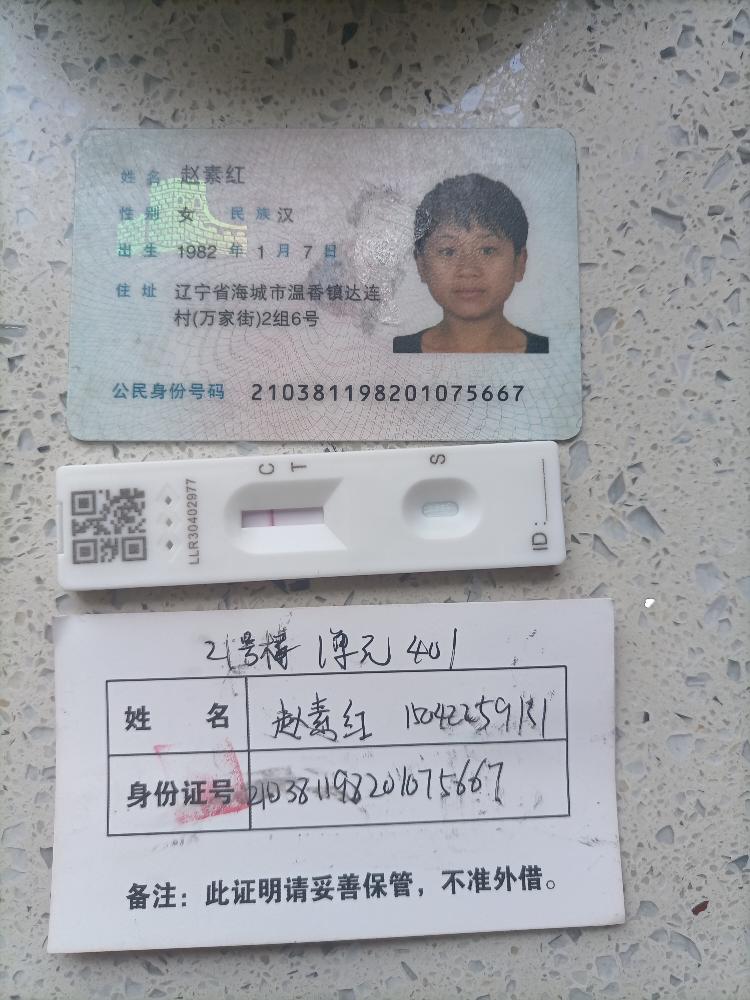 姓名 赵素红
性别 女 民族 汉
出生 1982年1月7日
住址 辽宁省海城市温香镇达连
村(万家街)2组6号
公民身份号码 210381198201075667
C T
S
LLR30402977
ID:
21号楼 1单元 401
姓名 赵素红
身份证号 210381198201075667
备注：此证明请妥善保管，不准外借。